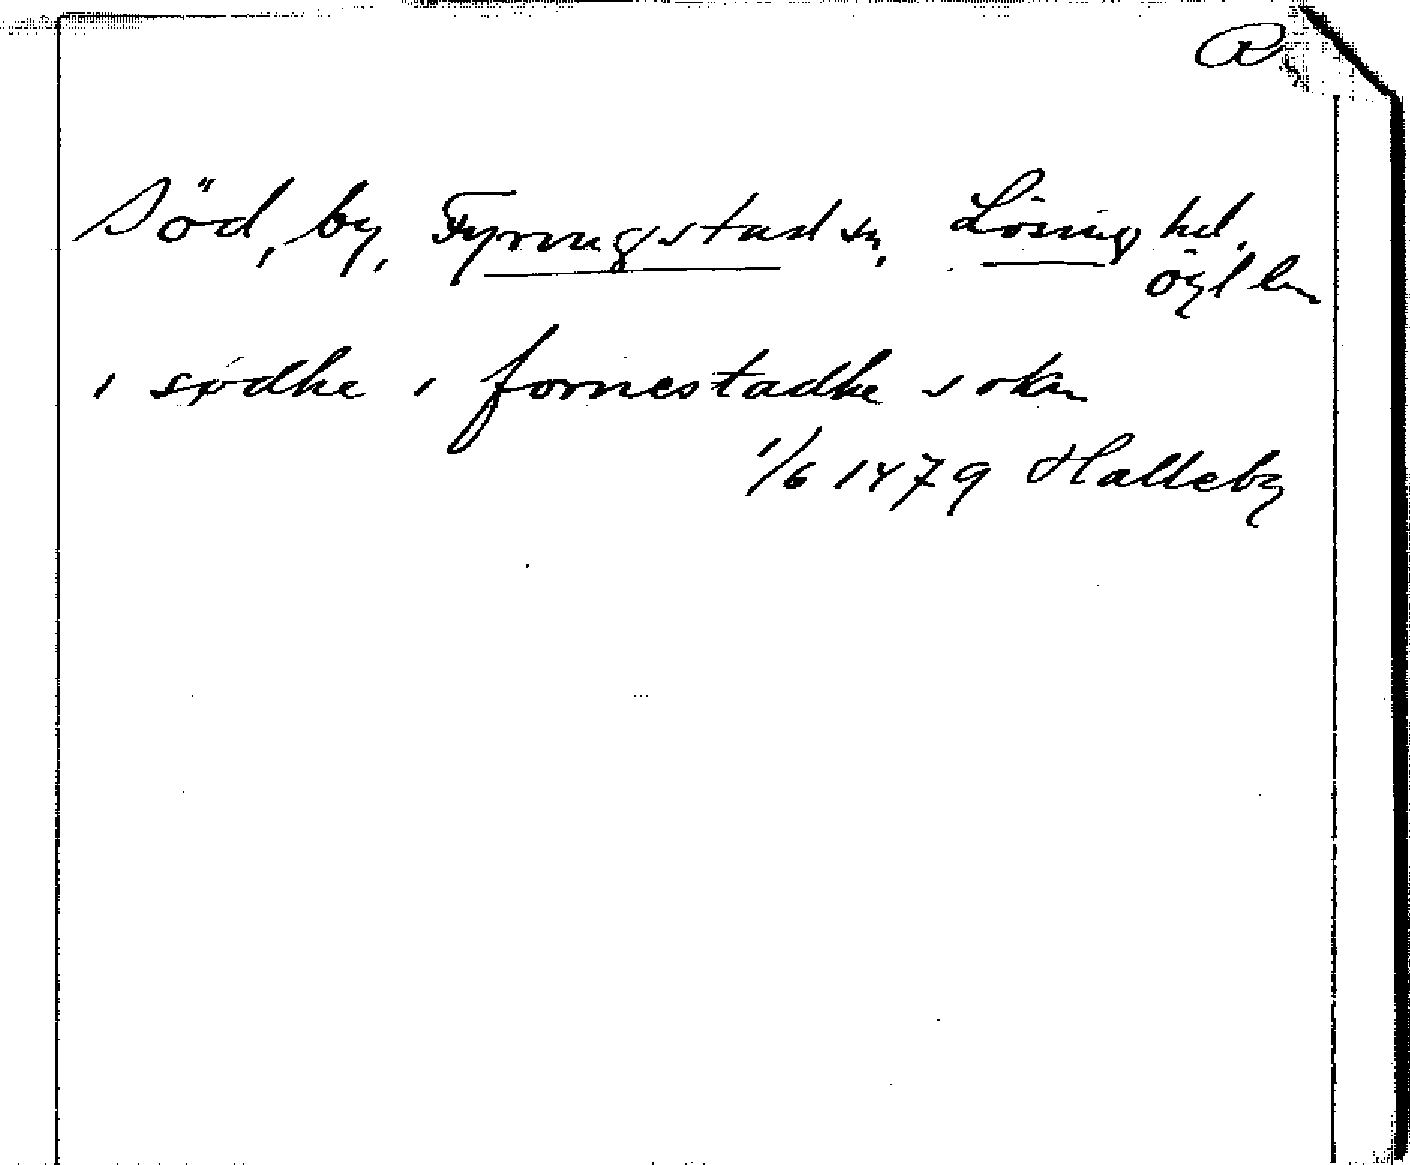 R
Söd, by, Fyringstad sn, Lösing hd,
ögl ln
i sødhe i fornestadhe sokn
1/6 1479 Halleby